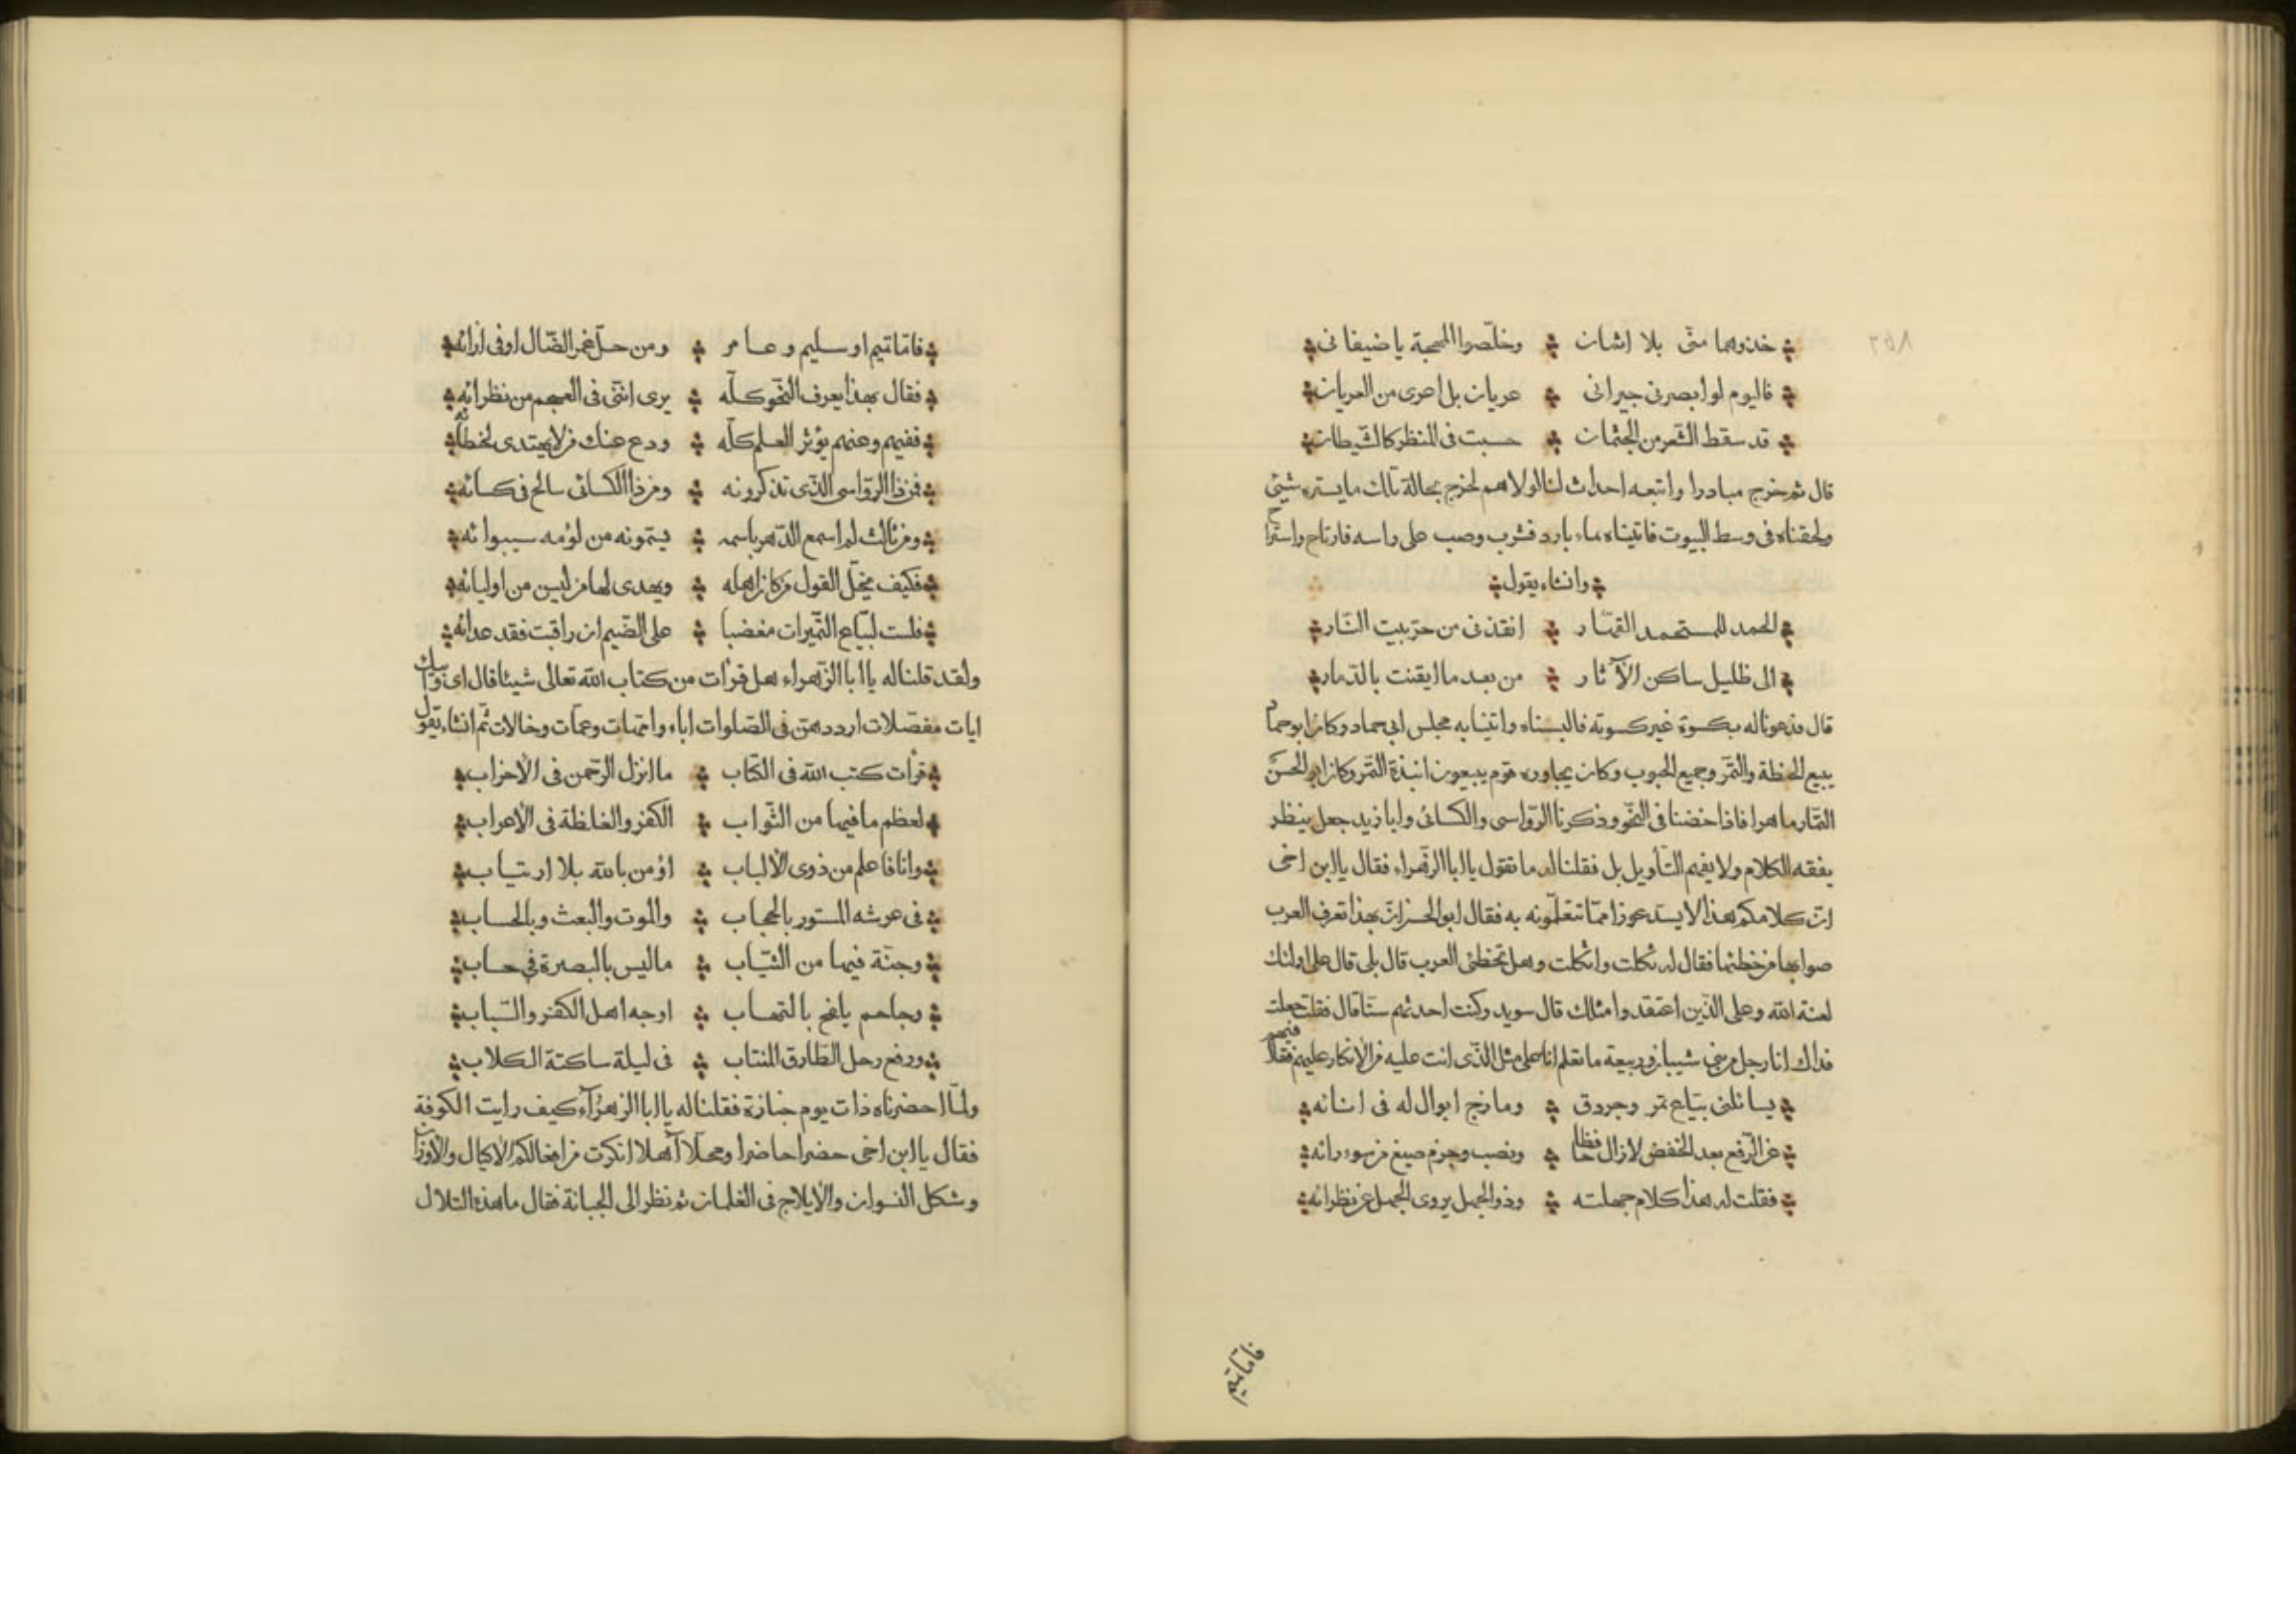 ٨٥٢
خذوهما منّى بلا اثمان ؞ وخلّصوا المهجة يا ضيفانى
فاليوم لو ابصرنى جيرانى ؞ عريان بل اعرى من العريان
قد سقط الشّعر من الجثمان ؞ حسبت فى المنظر كالشّيطان
قال ثم خرج مبادرا واتبعه احداث لنا لولاهم لخرج بحالة تلك ما يستره شيئ
ولحقناه فى وسط البيوت فاتيناه بماء بارد فشرب وصب على راسه فارتاح واستراح
وانشاء يقول
الحمد للمستحمد القهّار ؞ انقذنى من حرّ بيت النّار
الى ظليل ساكن الآثار ؞ من بعد ما ايقنت بالدّمار
قال فدعونا له بكسوة غير كسوته فالبسناه واتينا به مجلس ابى حماد وكان ابو حماد
يبيع الحنطة والتّمر وجميع الحبوب وكان يجاوره قوم يبيعون انبذة التّمر وكان ابو الحسن
التمّار ماهرا فاذا خضنا فى النّحو وذكرنا الرّواسى والكسائى وابا زيد جعل ينظر
يفقه الكلام ولا يفهم التّأويل بل فقلنا له ما تقول يا ابا الزّهراء فقال يا ابن اخى
انّ كلامكم هذا لا يسد عوزا ممّا تتعلّمونه به فقال ابو الحسن انّ بهذا تعرف العرب
صوابها من خطئها فقال له ثكلت واثكلت وهل تخطئ العرب قال بلى قال على اولئك
لعنة الله وعلى الّذين اعتقد وامثلك قال سويد وكنت احدثهم سنّا قال فقلت جعلت
فداك انا رجل من بنى شيبان وربيعة ما تعلم انا على مثل الّذى انت عليه من الانكار عليهم فقال فيهم
يسائلنى بيّاع تمر وجردق ؞ ومازج ابوال له فى انائه
عن الرّفع بعد الخفض لازال خافظا ؞ ونصب وجزم صيغ من سوء رائه
فقلت له هذا كلام جهلته ؞ وذو الجهل يروى الجهل عن نظرائه
فامّا تميم او سليم وعامر ؞ ومن حلّ غمر الضّال او فى ازائه
فقال بهذا يعرف النّحو كلّه ؞ يرى انّنى فى العجم من نظرائه
ففيهم وعنهم يؤثر العلم كلّه ؞ ودع عنك من لا يهتدى لخطائه
فمن ذا الرّواسى الّذى تذكرونه ؞ ومن ذا الكسائى سالح فى كسائه
ومن ثالث لم اسمع الدّهر باسمه ؞ يسمّونه من لؤمه سيبوائه
فكيف يخلّ القول من كان اهله ؞ ويهدى لها من ليس من اوليائه
فلست لبيّاع التّميرات مغضبا ؞ على الضّيم ان راقبت فقد عدائه
ولقد قلنا له يا ابا الزّهراء هل قرأت من كتاب الله تعالى شيئا قال اى وابيك
ايات مفصّلات ارددهنّ فى الصّلوات اباء وامّهات وعمّات وخالات ثمّ انشاء يقول
قرأت كتب الله فى الكتّاب ؞ ما انزل الرّحمن فى الأحزاب
لعظم ما فيها من الثّواب ؞ الكفر والغلظة فى الأعراب
وانا فاعلم من ذوى الألباب ؞ اؤمن بالله بلا ارتياب
فى عرشه المستور بالحجاب ؞ والموت والبعث وبالحساب
وجنّة فيها من الثّياب ؞ ما ليس بالبصرة فى حساب
وجاحم يلفح بالتهاب ؞ اوجه اهل الكفر والسّباب
ورفع رحل الطّارق المنتاب ؞ فى ليلة ساكتة الكلاب
ولمّا احضرناه ذات يوم جنازة فقلنا له يا ابا الزّهرآء كيف رايت الكوفة
فقال يا ابن اخى حضرا حاضرا ومحلّا آهلا انكرت من افعالكم الاكيال والأوزان
وشكل النسوان والايلاج فى الغلمان ثم نظر الى الجبانة فقال ما هذه التلال